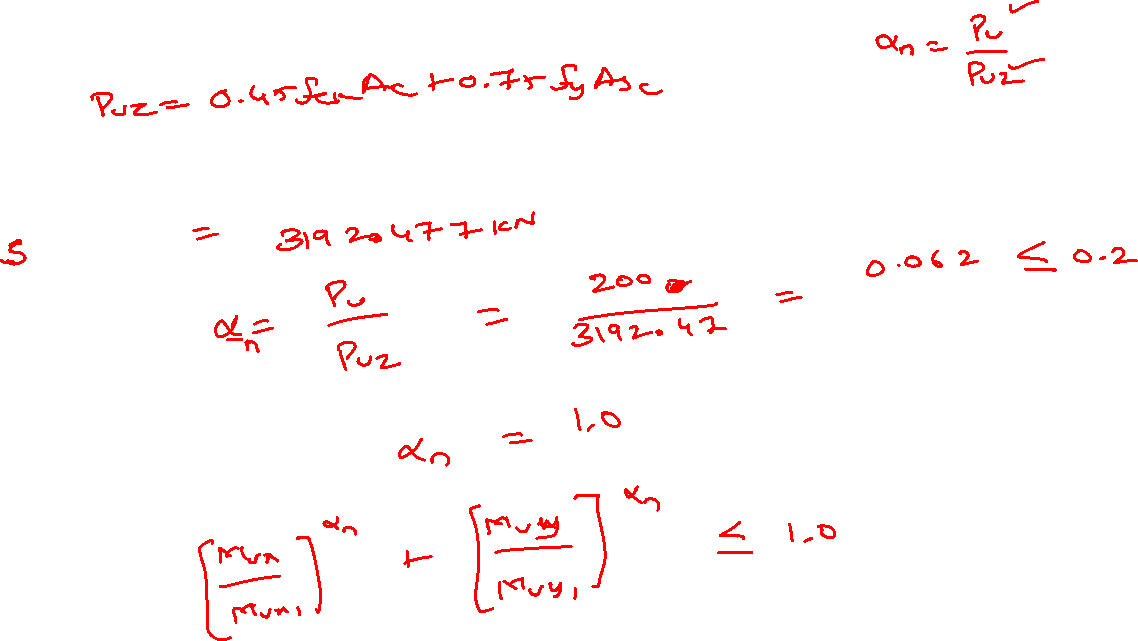 αn = Pu / Puz
Puz = 0.45 fck Ac + 0.75 fy Asc
= 3192.477 kN
S
αn = Pu / Puz = 200 / 3192.47 = 0.062 ≤ 0.2
αn = 1.0
[Mux / Mux1]^αn + [Muy / Muy1]^αn ≤ 1.0